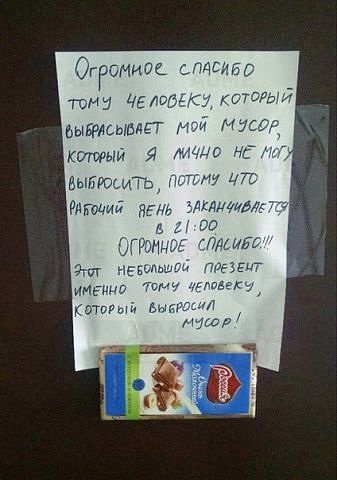 Огромное спасибо
тому человеку, который
выбрасывает мой мусор,
который я лично не могу
выбросить, потому что
рабочий день заканчивается
в 21:00
ОГРОМНОЕ СПАСИБО!!!
Этот небольшой презент
именно тому человеку,
который выбросил
мусор!
Россия
Очень
Молочный